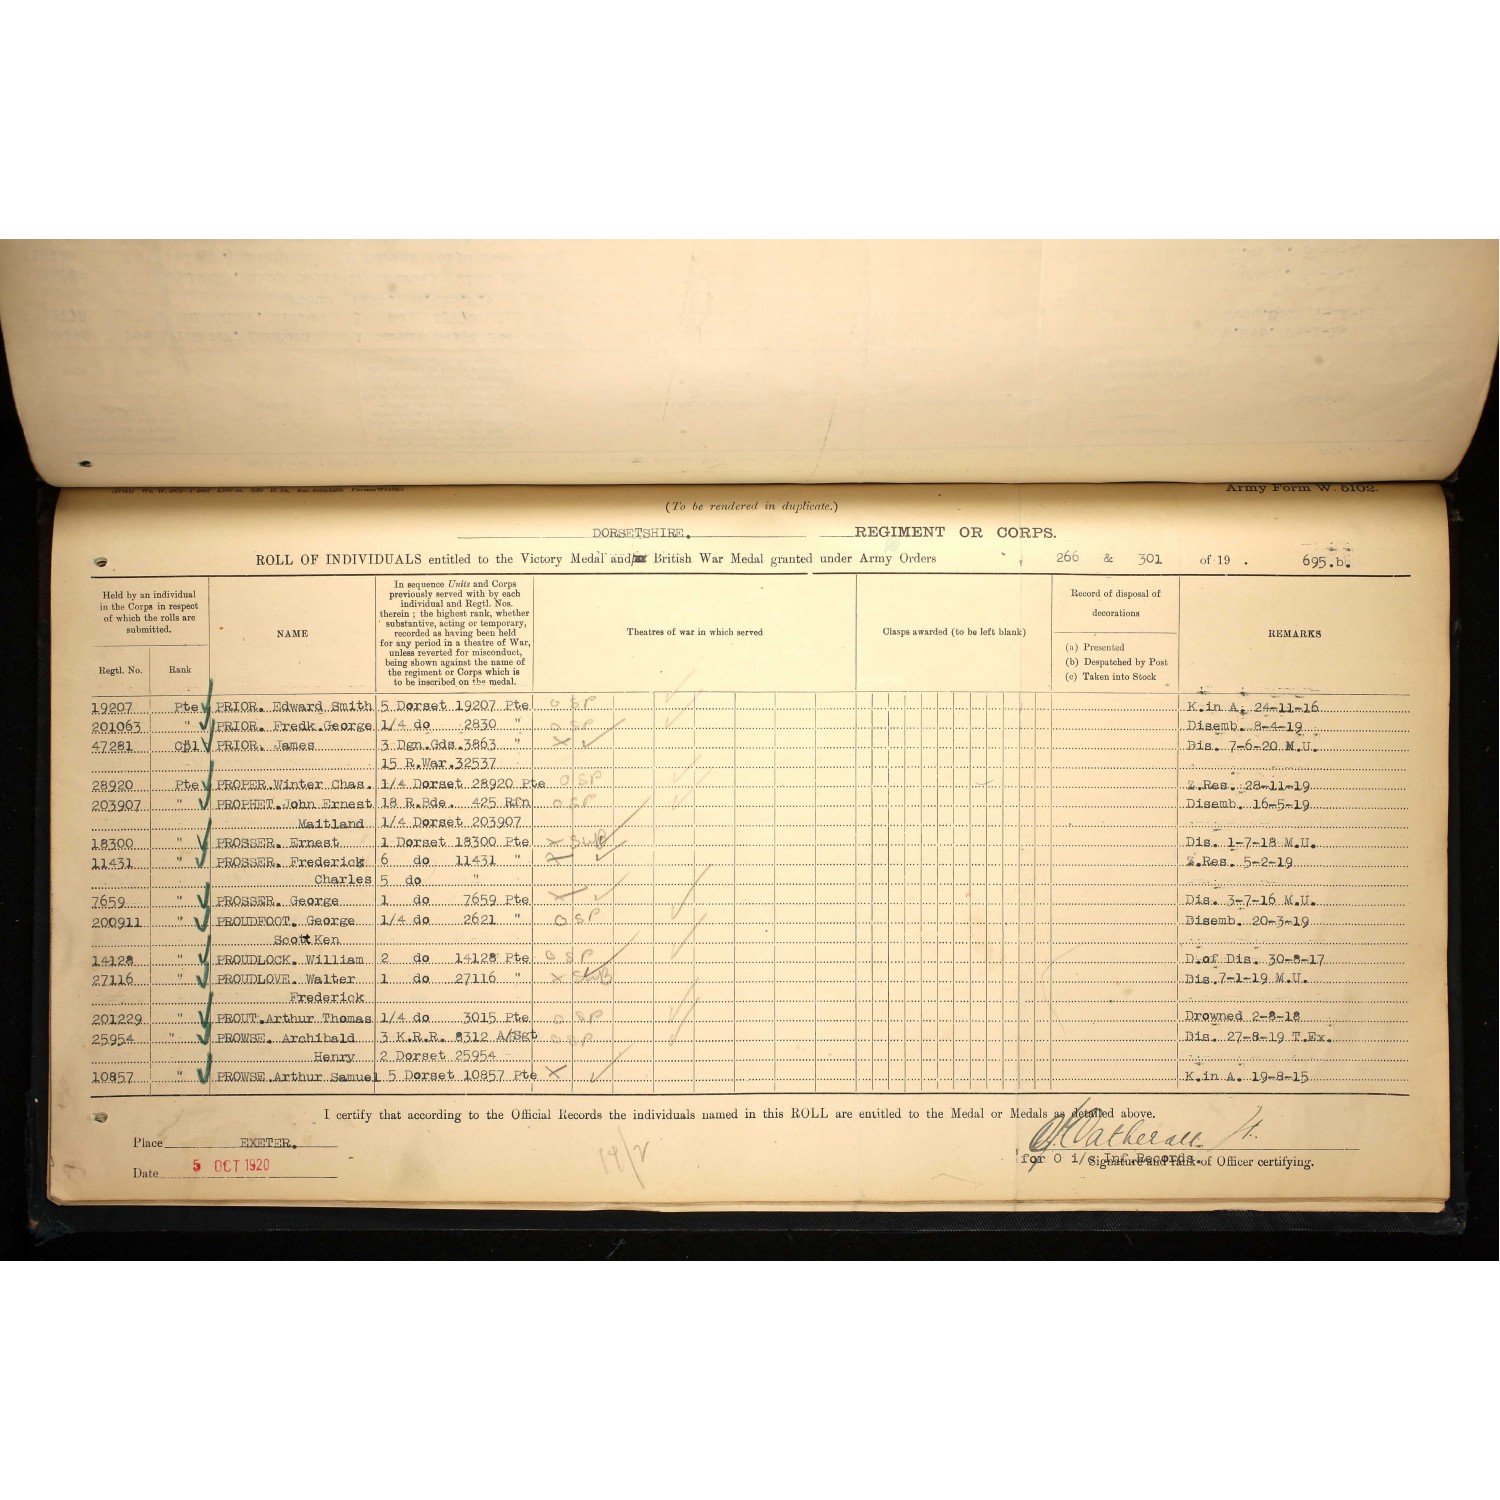 Army Form W. 5102.
(To be rendered in duplicate.)
DORSETSHIRE. REGIMENT OR CORPS.
ROLL OF INDIVIDUALS entitled to the Victory Medal and British War Medal granted under Army Orders 266 & 301 of 19 . 695.b.
Held by an individual in the Corps in respect of which the rolls are submitted.
Regtl. No. Rank
NAME
In sequence Units and Corps
previously served with by each
individual and Regtl. Nos.
therein ; the highest rank, whether
substantive, acting or temporary,
recorded as having been held
for any period in a theatre of War,
unless reverted for misconduct,
being shown against the name of
the regiment or Corps which is
to be inscribed on the medal.
Theatres of war in which served
Clasps awarded (to be left blank)
Record of disposal of
decorations
(a) Presented
(b) Despatched by Post
(c) Taken into Stock
REMARKS
19207 Pte PRIOR. Edward Smith 5 Dorset 19207 Pte O S P K.in A. 24-11-16
201063 " PRIOR. Fredk.George 1/4 do 2830 " O S P Disemb. 8-4-19
47281 Cpl PRIOR. James 3 Dgn.Gds.3863 " X Dis. 7-6-20 M.U.
15 R.War.32537
28920 Pte PROPER.Winter Chas. 1/4 Dorset 28920 Pte O S P Z.Res. 28-11-19
203907 " PROPHET.John Ernest 18 R.Bde. 425 Rfn O S P Disemb. 16-5-19
Maitland 1/4 Dorset 203907
18300 " PROSSER. Ernest 1 Dorset 18300 Pte X SWB Dis. 1-7-18 M.U.
11431 " PROSSER. Frederick 6 do 11431 " X Z.Res. 5-2-19
Charles 5 do "
7659 " PROSSER. George 1 do 7659 Pte X Dis. 3-7-16 M.U.
200911 " PROUDFOOT. George 1/4 do 2621 " O S P Disemb. 20-3-19
Scott Ken
14128 " PROUDLOCK. William 2 do 14128 Pte O S P D.of Dis. 30-8-17
27116 " PROUDLOVE. Walter 1 do 27116 " X SWB Dis.7-1-19 M.U.
Frederick
201229 " PROUT.Arthur Thomas 1/4 do 3015 Pte O S P Drowned 2-8-18
25954 " PROWSE. Archibald 3 K.R.R. 8312 A/Sgt O S P Dis. 27-8-19 T.Ex.
Henry 2 Dorset 25954
10857 " PROWSE.Arthur Samuel 5 Dorset 10857 Pte X K.in A. 19-8-15
I certify that according to the Official Records the individuals named in this ROLL are entitled to the Medal or Medals as detailed above.
Place EXETER.
Date 5 OCT 1920
19/2
for O i/s Inf.Records.
Signature and rank of Officer certifying.